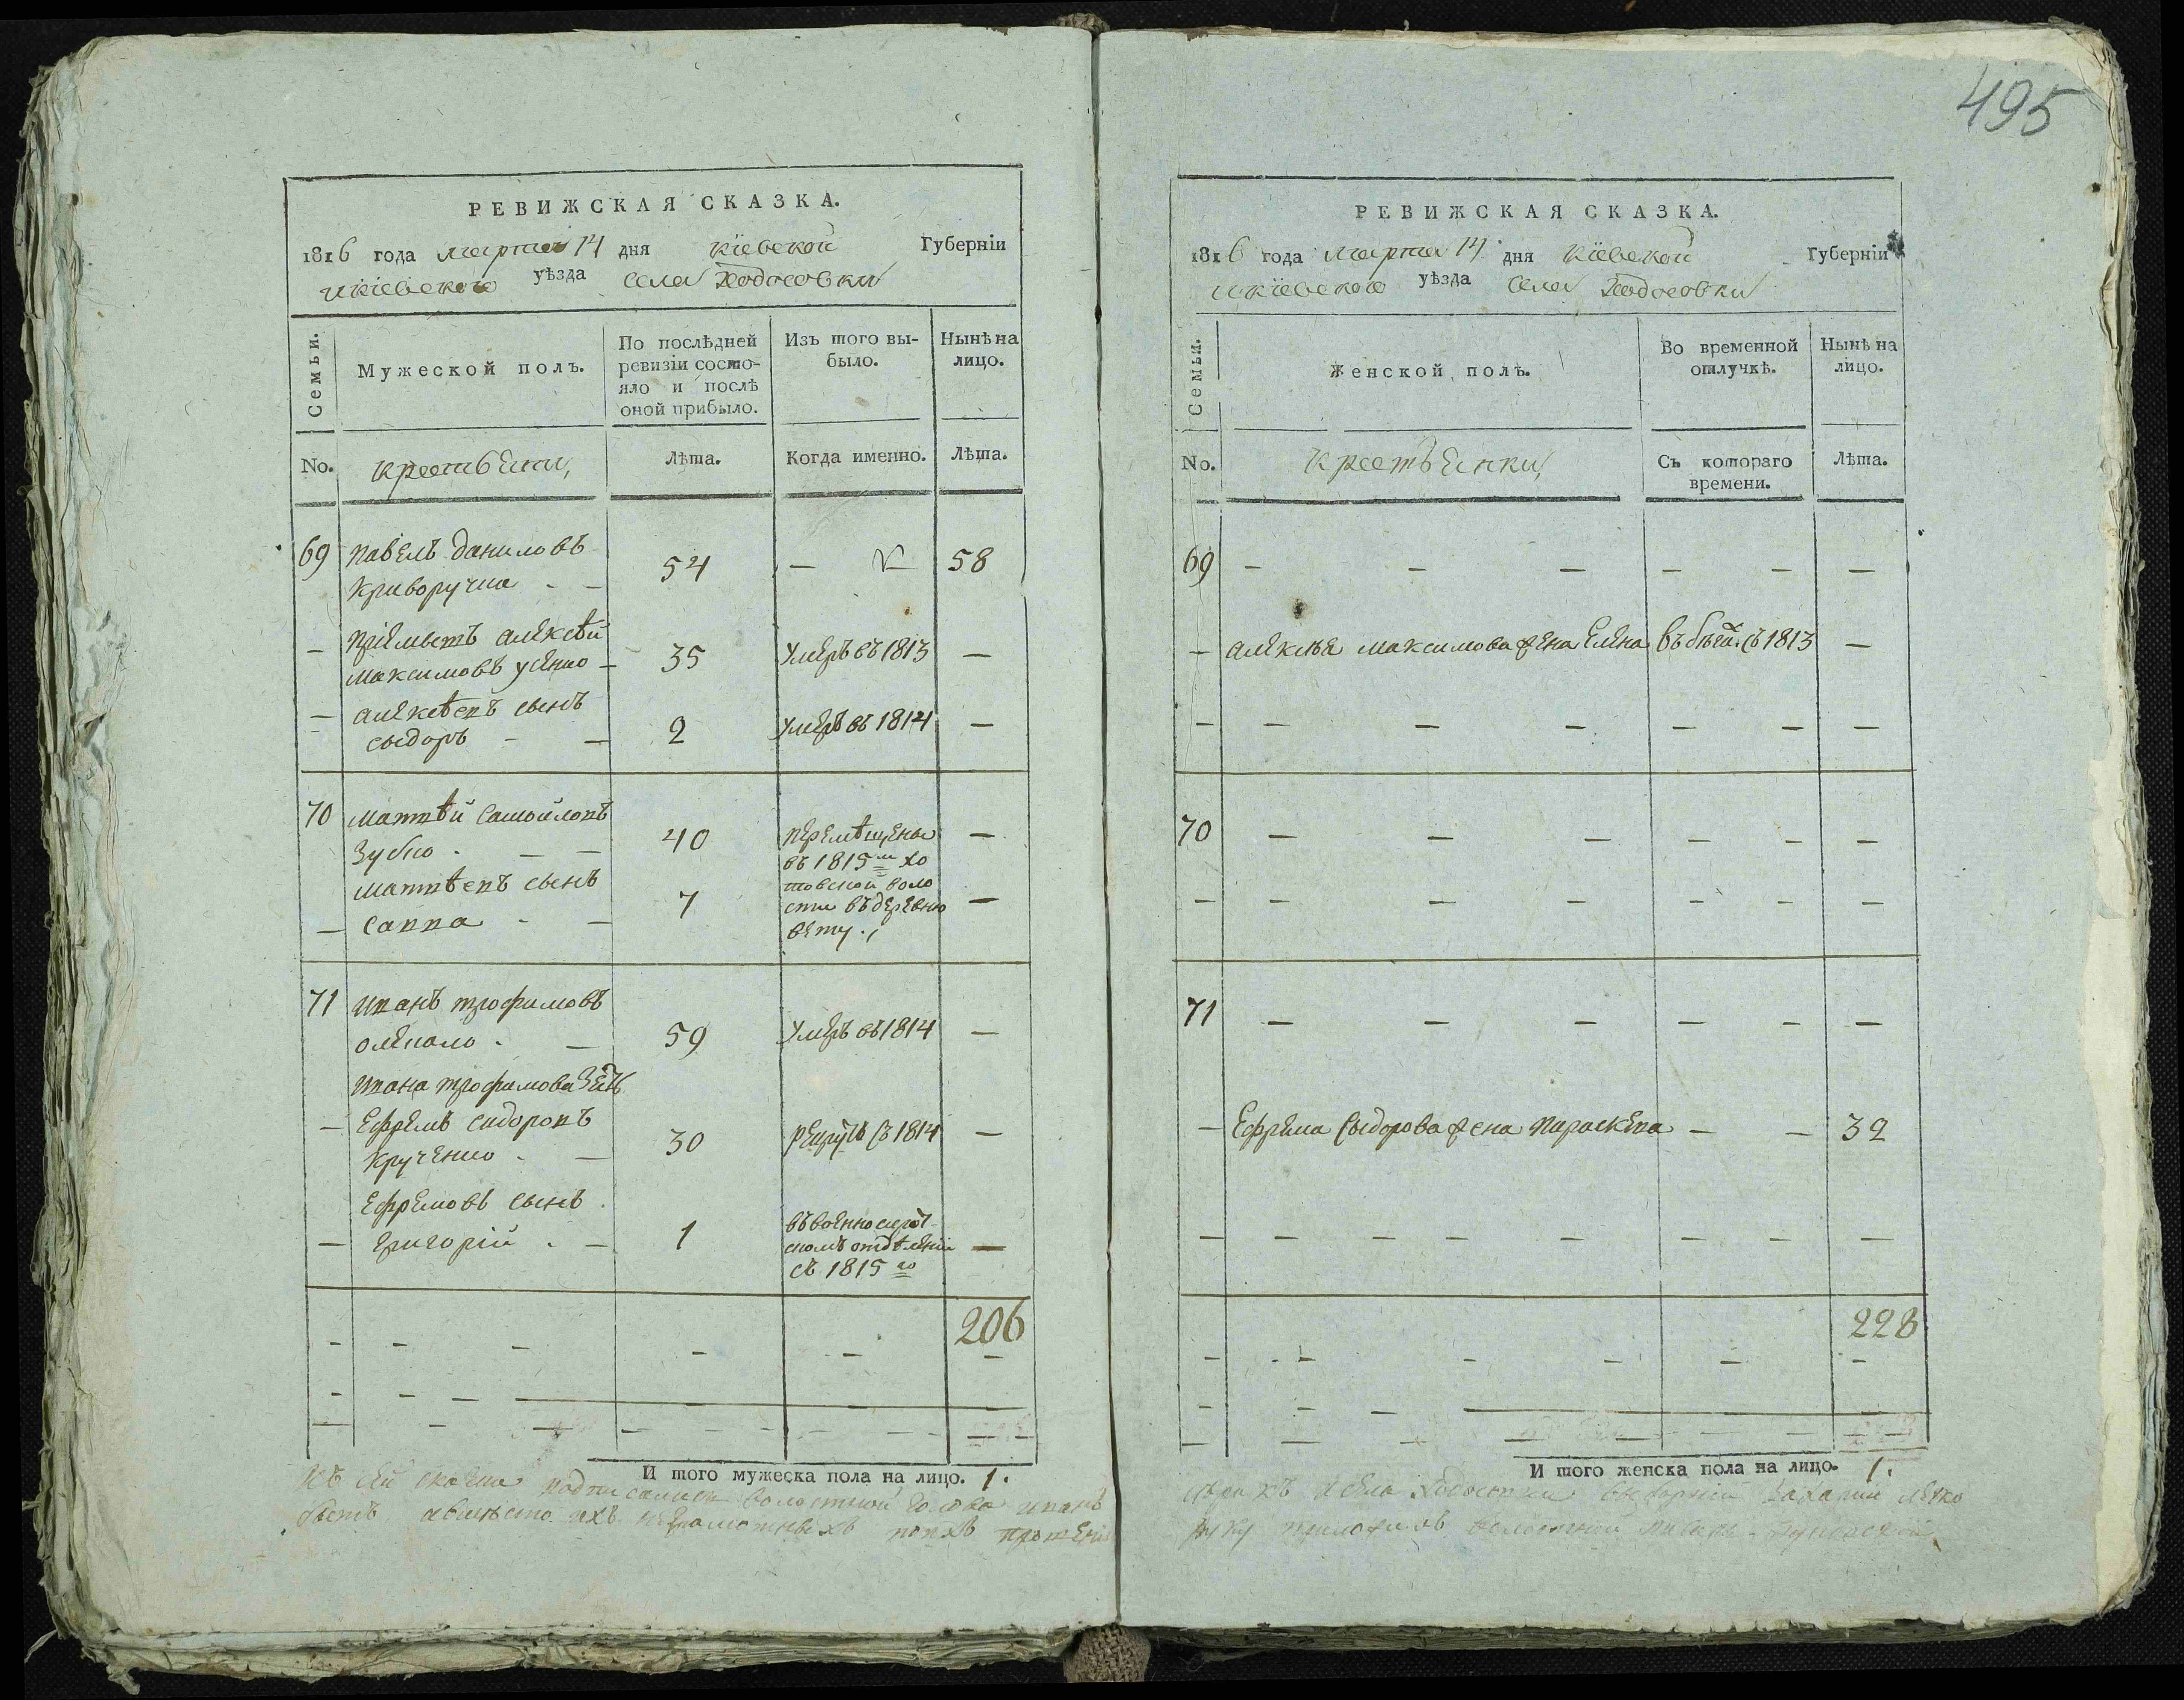 495
РЕВИЖСКАЯ СКАЗКА.
1816 года марта 14 дня кіевской Губерніи
икіевского уѣзда села Ходосовки
Семьи.
Мужеской полъ.
По послѣдней
ревизіи состо-
яло и послѣ
оной прибыло.
Изъ того вы-
было.
Нынѣ на
лицо.
No.
крестьяни,
Лѣта.
Когда именно.
Лѣта.
69 павелъ даниловъ
криворучка - - 54 - 58
- пріемытъ алексѣй
максимовъ усенко - 35 умеръ въ 1813 -
- алексѣевъ сынъ
сыдоръ - - 2 умеръ въ 1814 -
70 матвѣй самойловъ
зубко . - - 40 перемѣщены -
въ 1815м хо
матвѣевъ сынъ товской воло
- савва - - 7 сти въ деревню -
вету .,
71 иванъ трофимовъ
олекало . - 59 умеръ въ 1814 -
ивана трофимова зять
- ефремъ сидоровъ
крученко . - 30 рекрутъ съ 1814 -
ефремовъ сынъ .
- григорій . - 1 въ военно сирот-
скомъ отдѣленіи -
съ 1815го
206
И того мужеска пола на лицо. 1.
къ сей скаске подписались волостной голова иванъ
а вместо ихъ неграмотныхъ поихъ прошенію
РЕВИЖСКАЯ СКАЗКА.
1816 года марта 14 дня кіевской Губерніи
икіевского уѣзда села Ходосовки
Семьи.
Женской полъ.
Во временной
отлучкѣ.
Нынѣ на
лицо.
No.
крестьянки,
Съ котораго
времени.
Лѣта.
69 - - - - - -
- алексѣя максимова жена елена въ бѣгах съ 1813 -
- - - - - - -
70 - - - - - -
- - - - - - -
71 - - - - - -
- ефрема сыдорова жена параскева - - 32
- - - - - - - -
228
И того женска пола на лицо. 1.
села ходосовки выборній
руку приложилъ волостной писарь